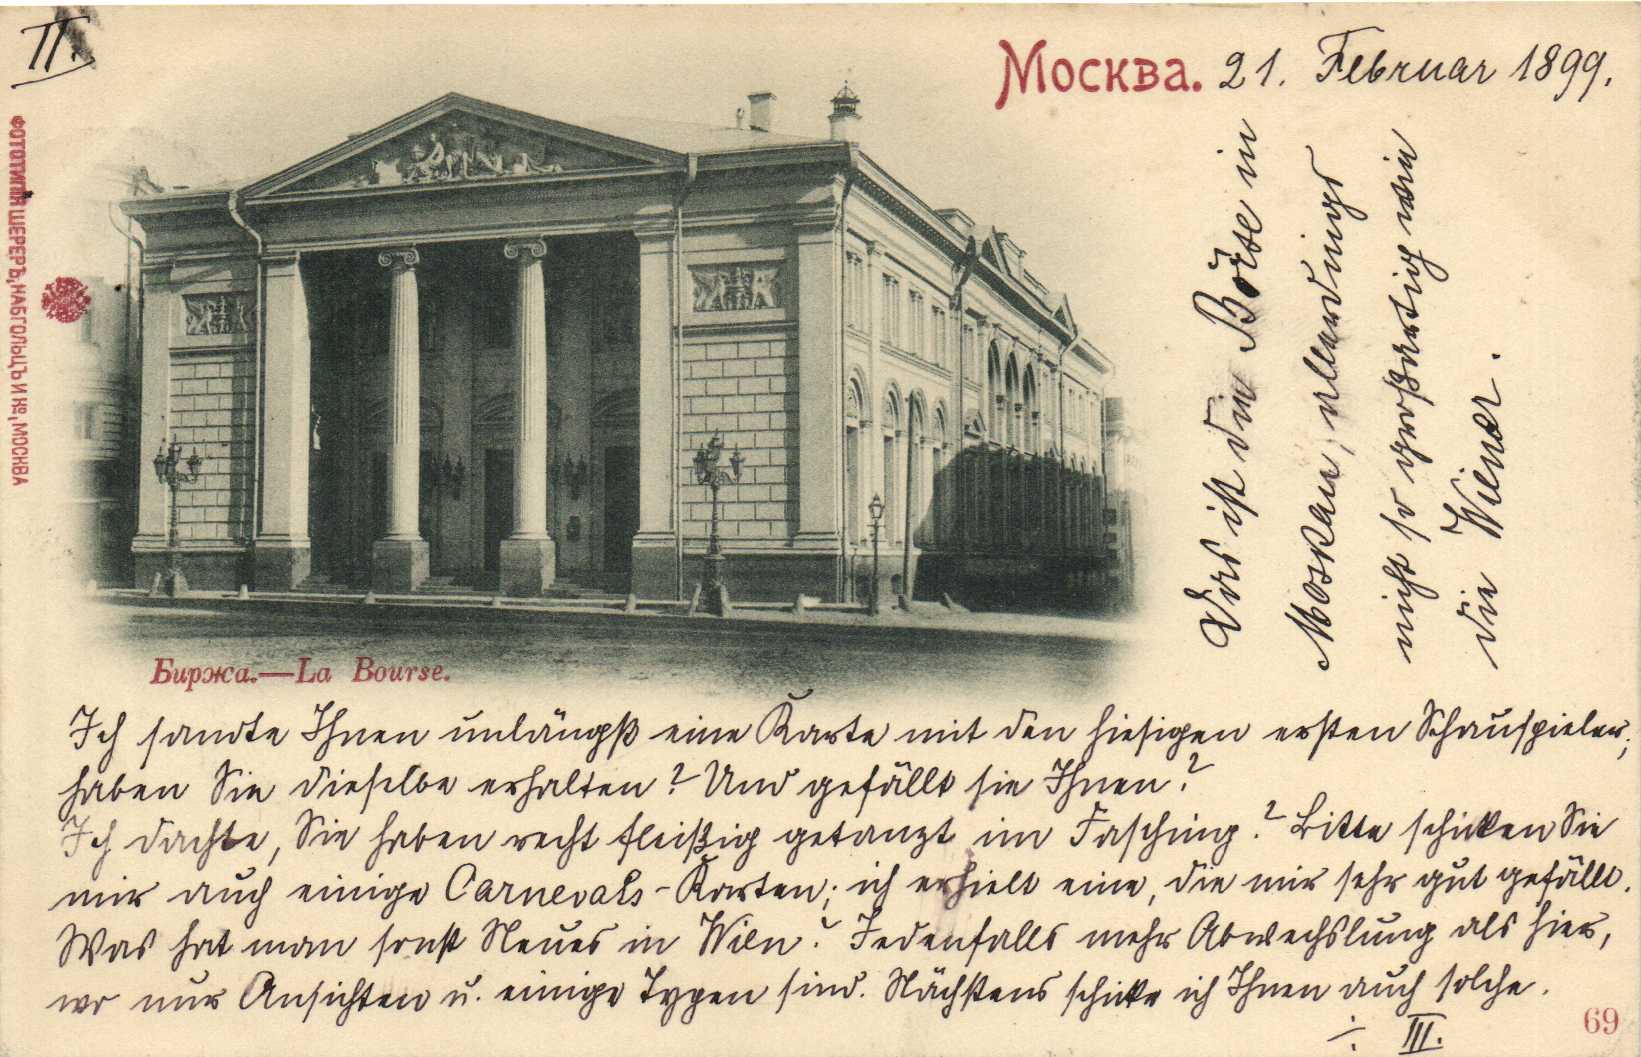 II.
Москва. 21. Februar 1899.
ФОТОТИПІЯ ШЕРЕРЪ, НАБГОЛЬЦЪ И Ко, МОСКВА
Das ist die Börse in
Moskau, allerdings
nicht so großartig wie
die Wiener.
Биржа.—La Bourse.
Ich sandte Ihnen unlängst eine Karte mit den hiesigen ersten Schauspieler;
haben Sie dieselbe erhalten? Und gefällt sie Ihnen?
Ich dachte, Sie haben recht fleißig getanzt im Fasching? Bitte schicken Sie
mir auch einige Carnevals-Karten; ich erhielt eine, die mir sehr gut gefällt.
Was hat man sonst Neues in Wien? Jedenfalls mehr Abwechslung als hier,
wo nur Ansichten u. einige Typen sind. Nächstens schicke ich Ihnen auch solche.
÷ III.
69